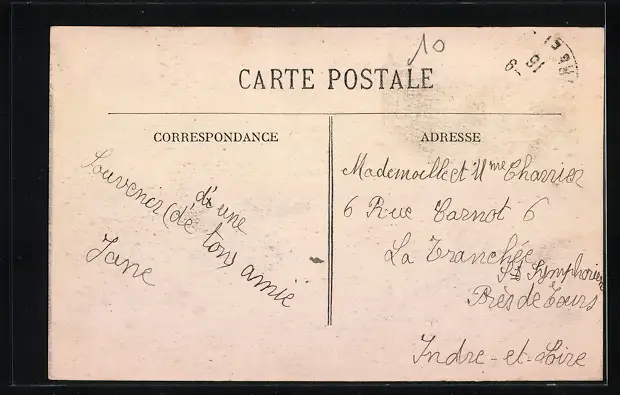 10
CARTE POSTALE
CORRESPONDANCE
Souvenir (de ton) amie
d'une
Jane
ADRESSE
Mademoille et Mme Charrier
6 Rue Carnot 6
La Tranchée
St Symphorien
Près de Tours
Indre-et-Loire